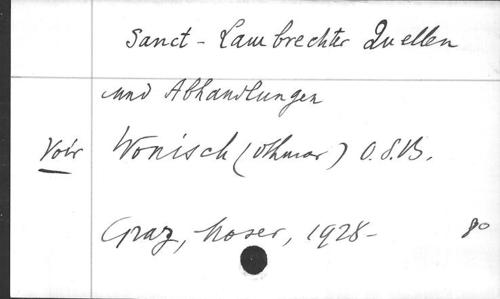 Sanct - Lambrechter Quellen
und Abhandlungen
Voir Wonisch (Othmar) O.S.B.
Graz, Moser, 1928- 8o